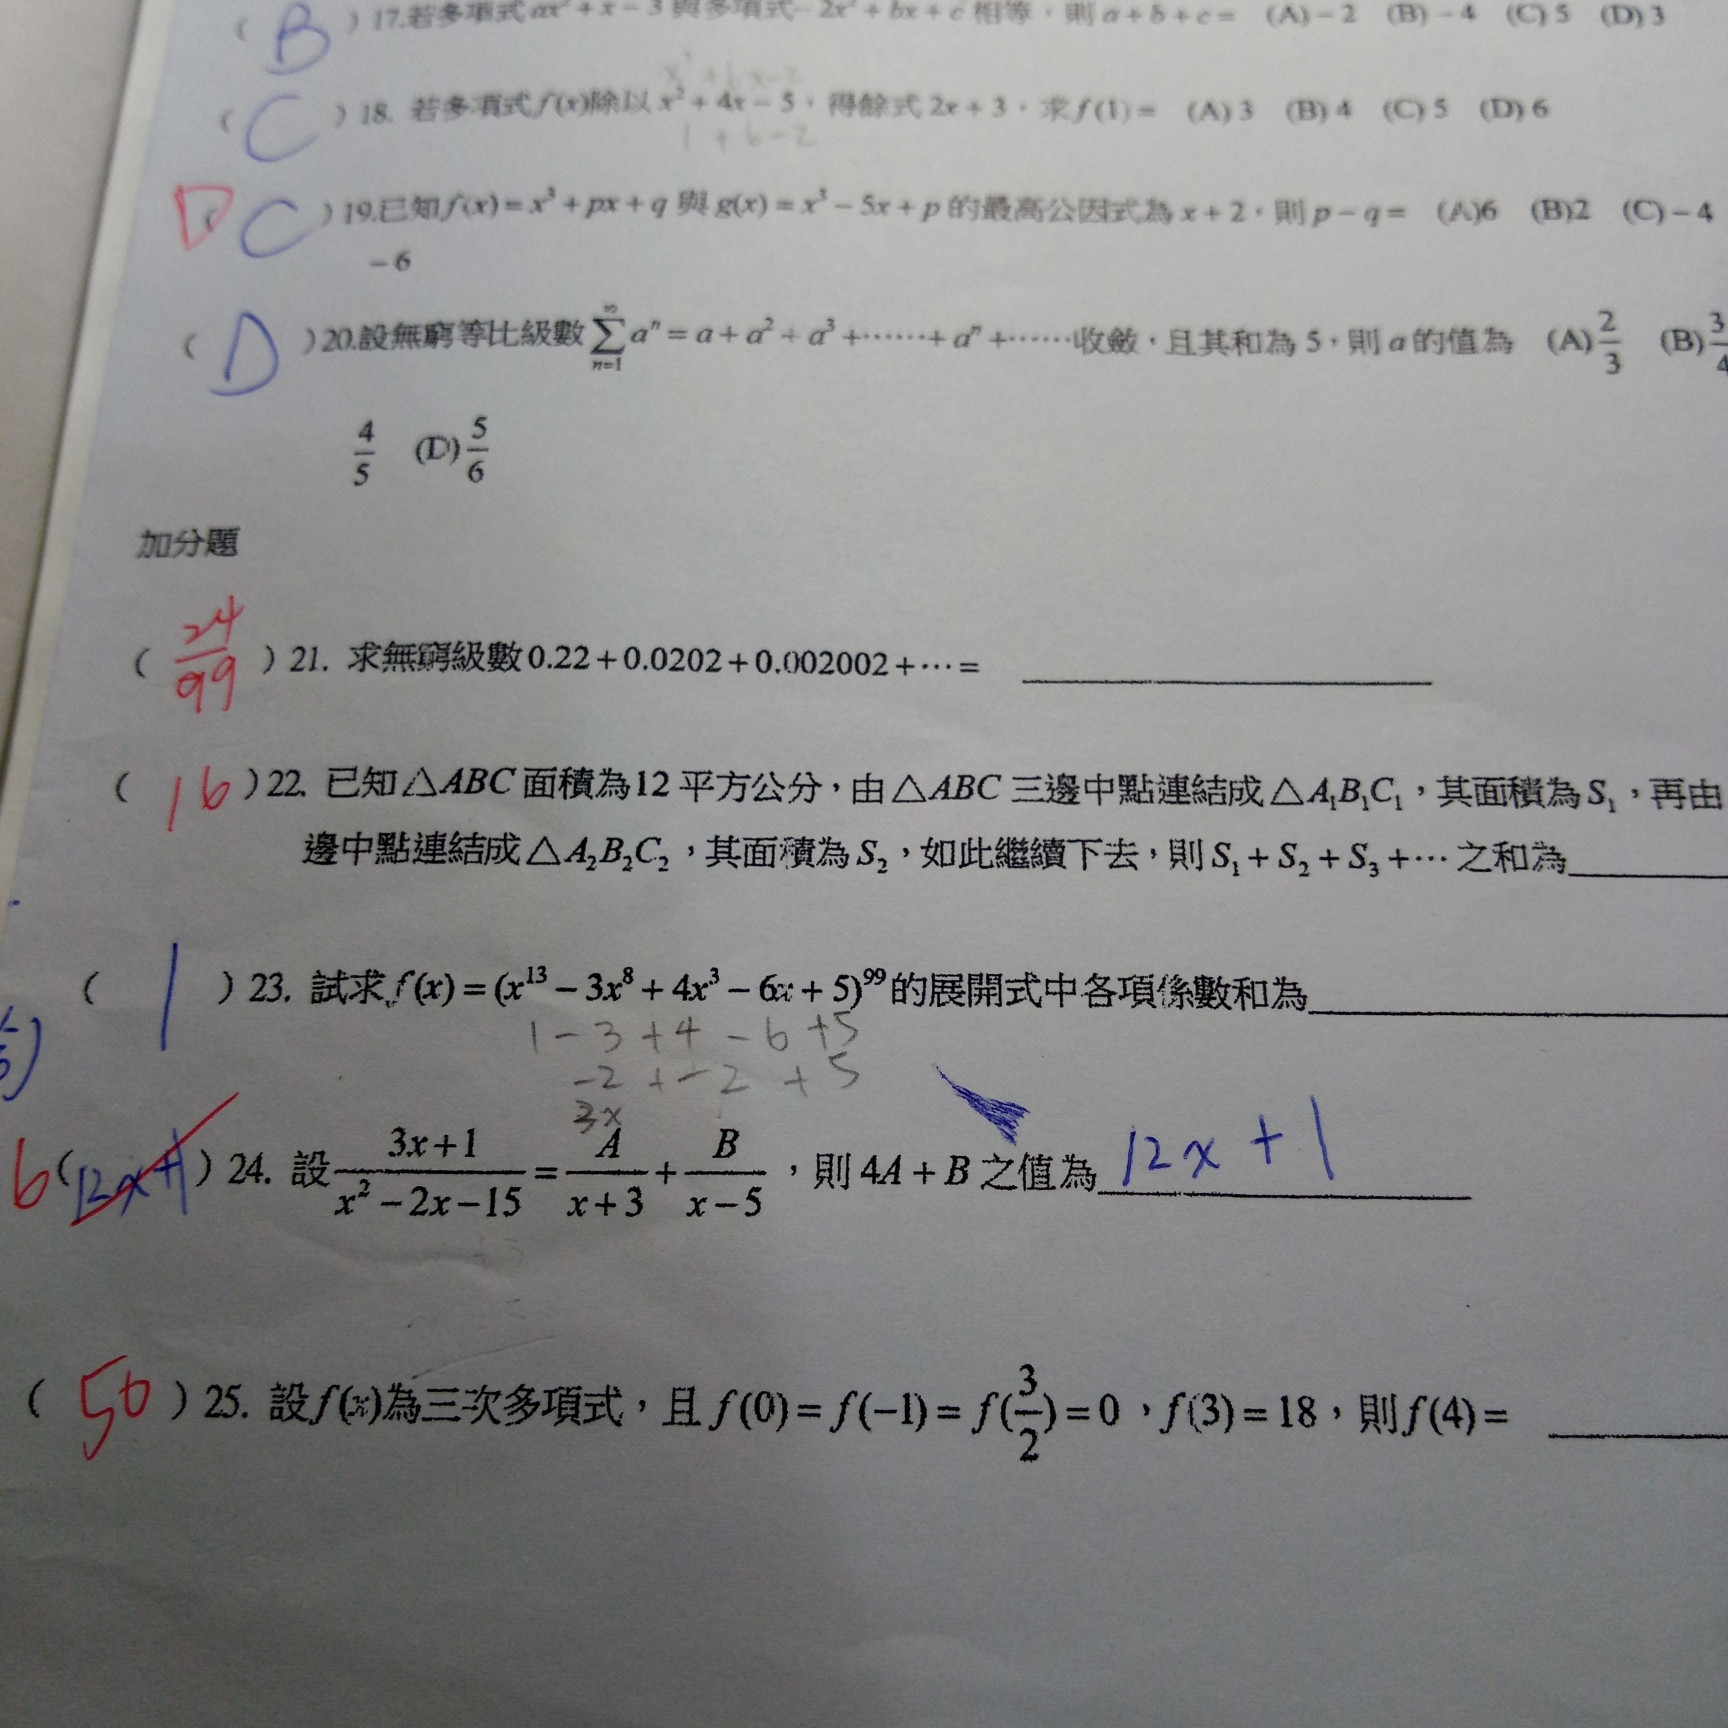 ( B ) 17.若多項式 ax² + x − 3 與多項式 − 2x² + bx + c 相等，則 a + b + c = (A) − 2 (B) − 4 (C) 5 (D) 3
( C ) 18. 若多項式 f(x)除以 x² + 4x − 5，得餘式 2x + 3，求 f(1) = (A) 3 (B) 4 (C) 5 (D) 6
1 + 6 − 2
D ( C ) 19.已知 f(x) = x³ + px + q 與 g(x) = x³ − 5x + p 的最高公因式為 x + 2，則 p − q = (A)6 (B)2 (C) − 4
− 6
( D ) 20.設無窮等比級數 ∑_{n=1}^{∞} aⁿ = a + a² + a³ +……+ aⁿ +……收斂，且其和為 5，則 a 的值為 (A) 2/3 (B) 3/4
4/5 (D) 5/6
加分題
( 24/99 ) 21. 求無窮級數 0.22 + 0.0202 + 0.002002 + ⋯ =
( 16 ) 22. 已知 △ABC 面積為 12 平方公分，由 △ABC 三邊中點連結成 △A₁B₁C₁，其面積為 S₁，再由
邊中點連結成 △A₂B₂C₂，其面積為 S₂，如此繼續下去，則 S₁ + S₂ + S₃ + ⋯ 之和為
( 1 ) 23. 試求 f(x) = (x¹³ − 3x⁸ + 4x³ − 6x + 5)⁹⁹ 的展開式中各項係數和為
1 − 3 + 4 − 6 + 5
−2 + −2 + 5
3x
6 ( 12x+1 ) 24. 設 (3x+1)/(x² − 2x − 15) = A/(x+3) + B/(x−5)，則 4A + B 之值為 12x + 1
( 50 ) 25. 設 f(x)為三次多項式，且 f(0) = f(−1) = f(3/2) = 0，f(3) = 18，則 f(4) =